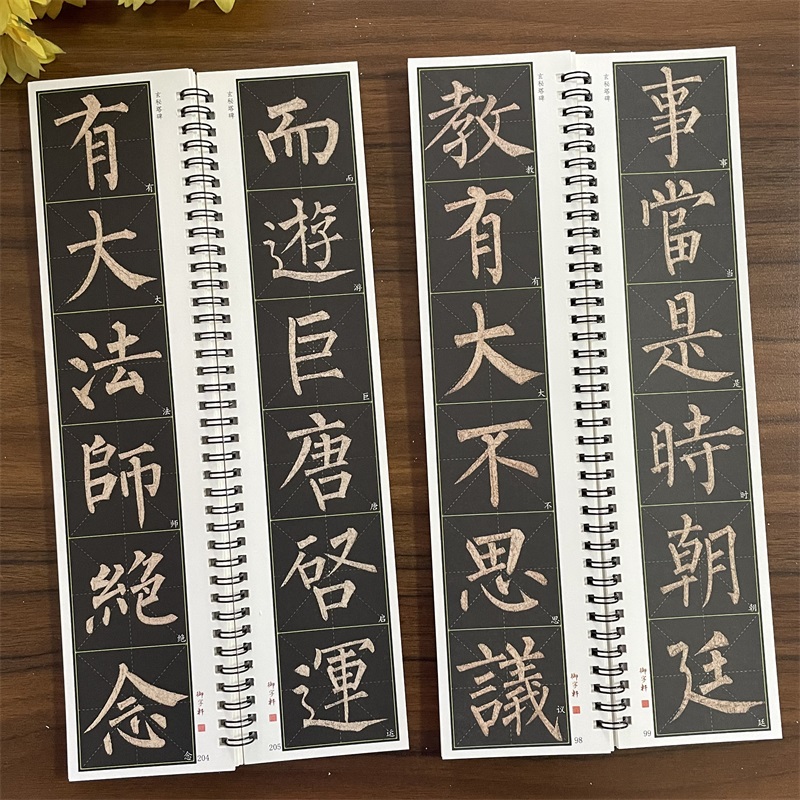 有大法師絕念
有大法师绝念
玄秘塔碑
御字軒
204
而遊巨唐啓運
而游巨唐启运
玄秘塔碑
御字軒
205
教有大不思議
教有大不思议
玄秘塔碑
御字軒
98
事當是時朝廷
事当是时朝廷
玄秘塔碑
御字軒
99